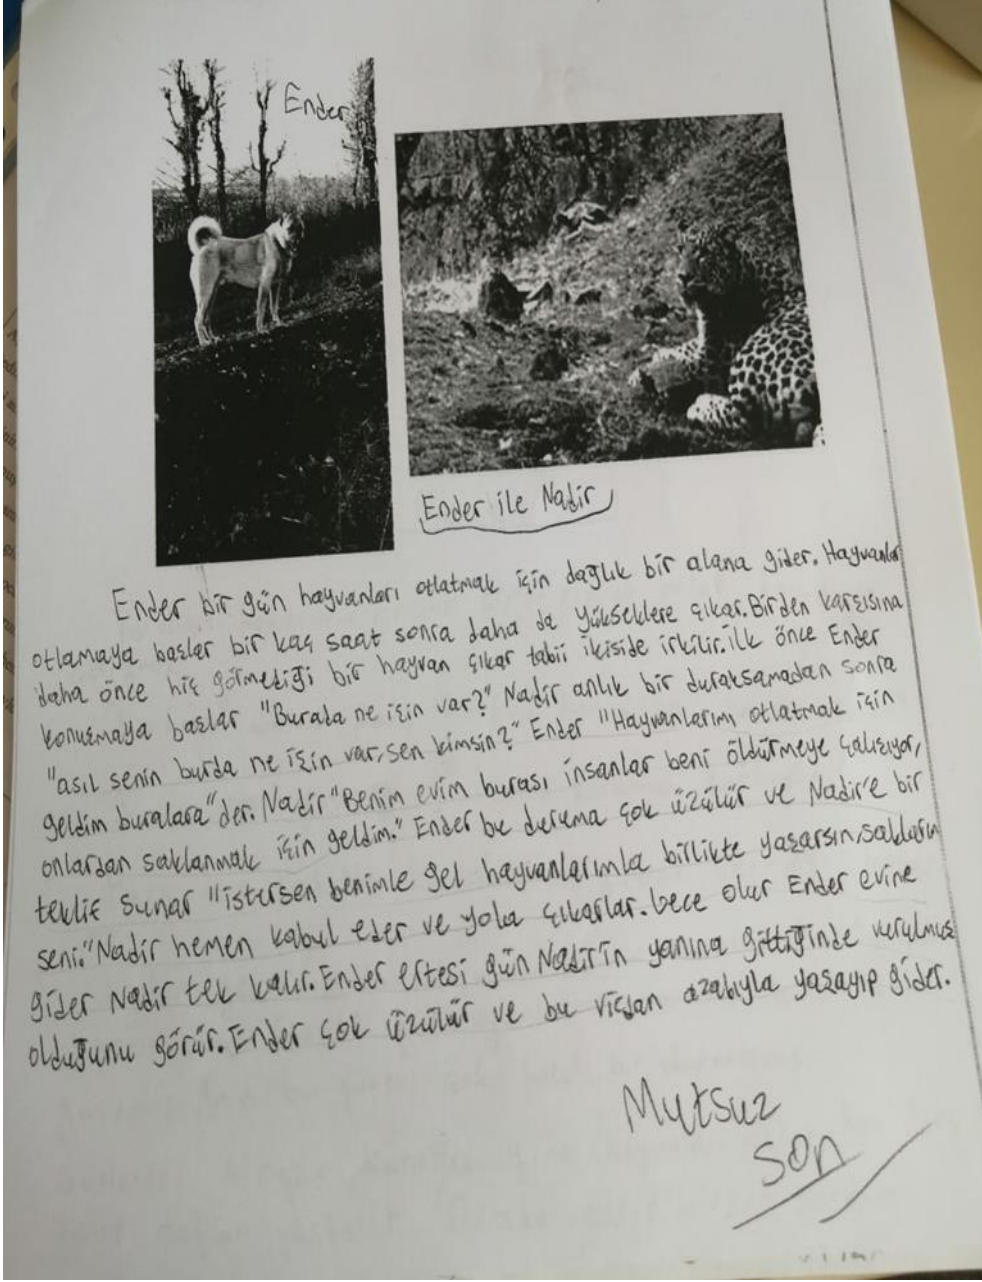 Ender
Ender ile Nadir
Ender bir gün hayvanları otlatmak için dağlık bir alana gider. Hayvanlar
otlamaya başlar bir kaç saat sonra daha da yükseklere çıkar. Birden karşısına
daha önce hiç görmediği bir hayvan çıkar tabii ikiside irkilir. İlk önce Ender
konuşmaya başlar "Burada ne işin var?" Nadir anlık bir duraksamadan sonra
"asıl senin burda ne işin var, sen kimsin?" Ender "Hayvanlarımı otlatmak için
geldim buralara" der. Nadir "Benim evim burası insanlar beni öldürmeye çalışıyor,
onlardan saklanmak için geldim." Ender bu duruma çok üzülür ve Nadir'e bir
teklif sunar "istersen benimle gel hayvanlarımla birlikte yaşarsın, saklarım
seni." Nadir hemen kabul eder ve yola çıkarlar. Gece olur Ender evine
gider Nadir tek kalır. Ender ertesi gün Nadir'in yanına gittiğinde vurulmuş
olduğunu görür. Ender çok üzülür ve bu vicdan azabıyla yaşayıp gider.
Mutsuz
Son